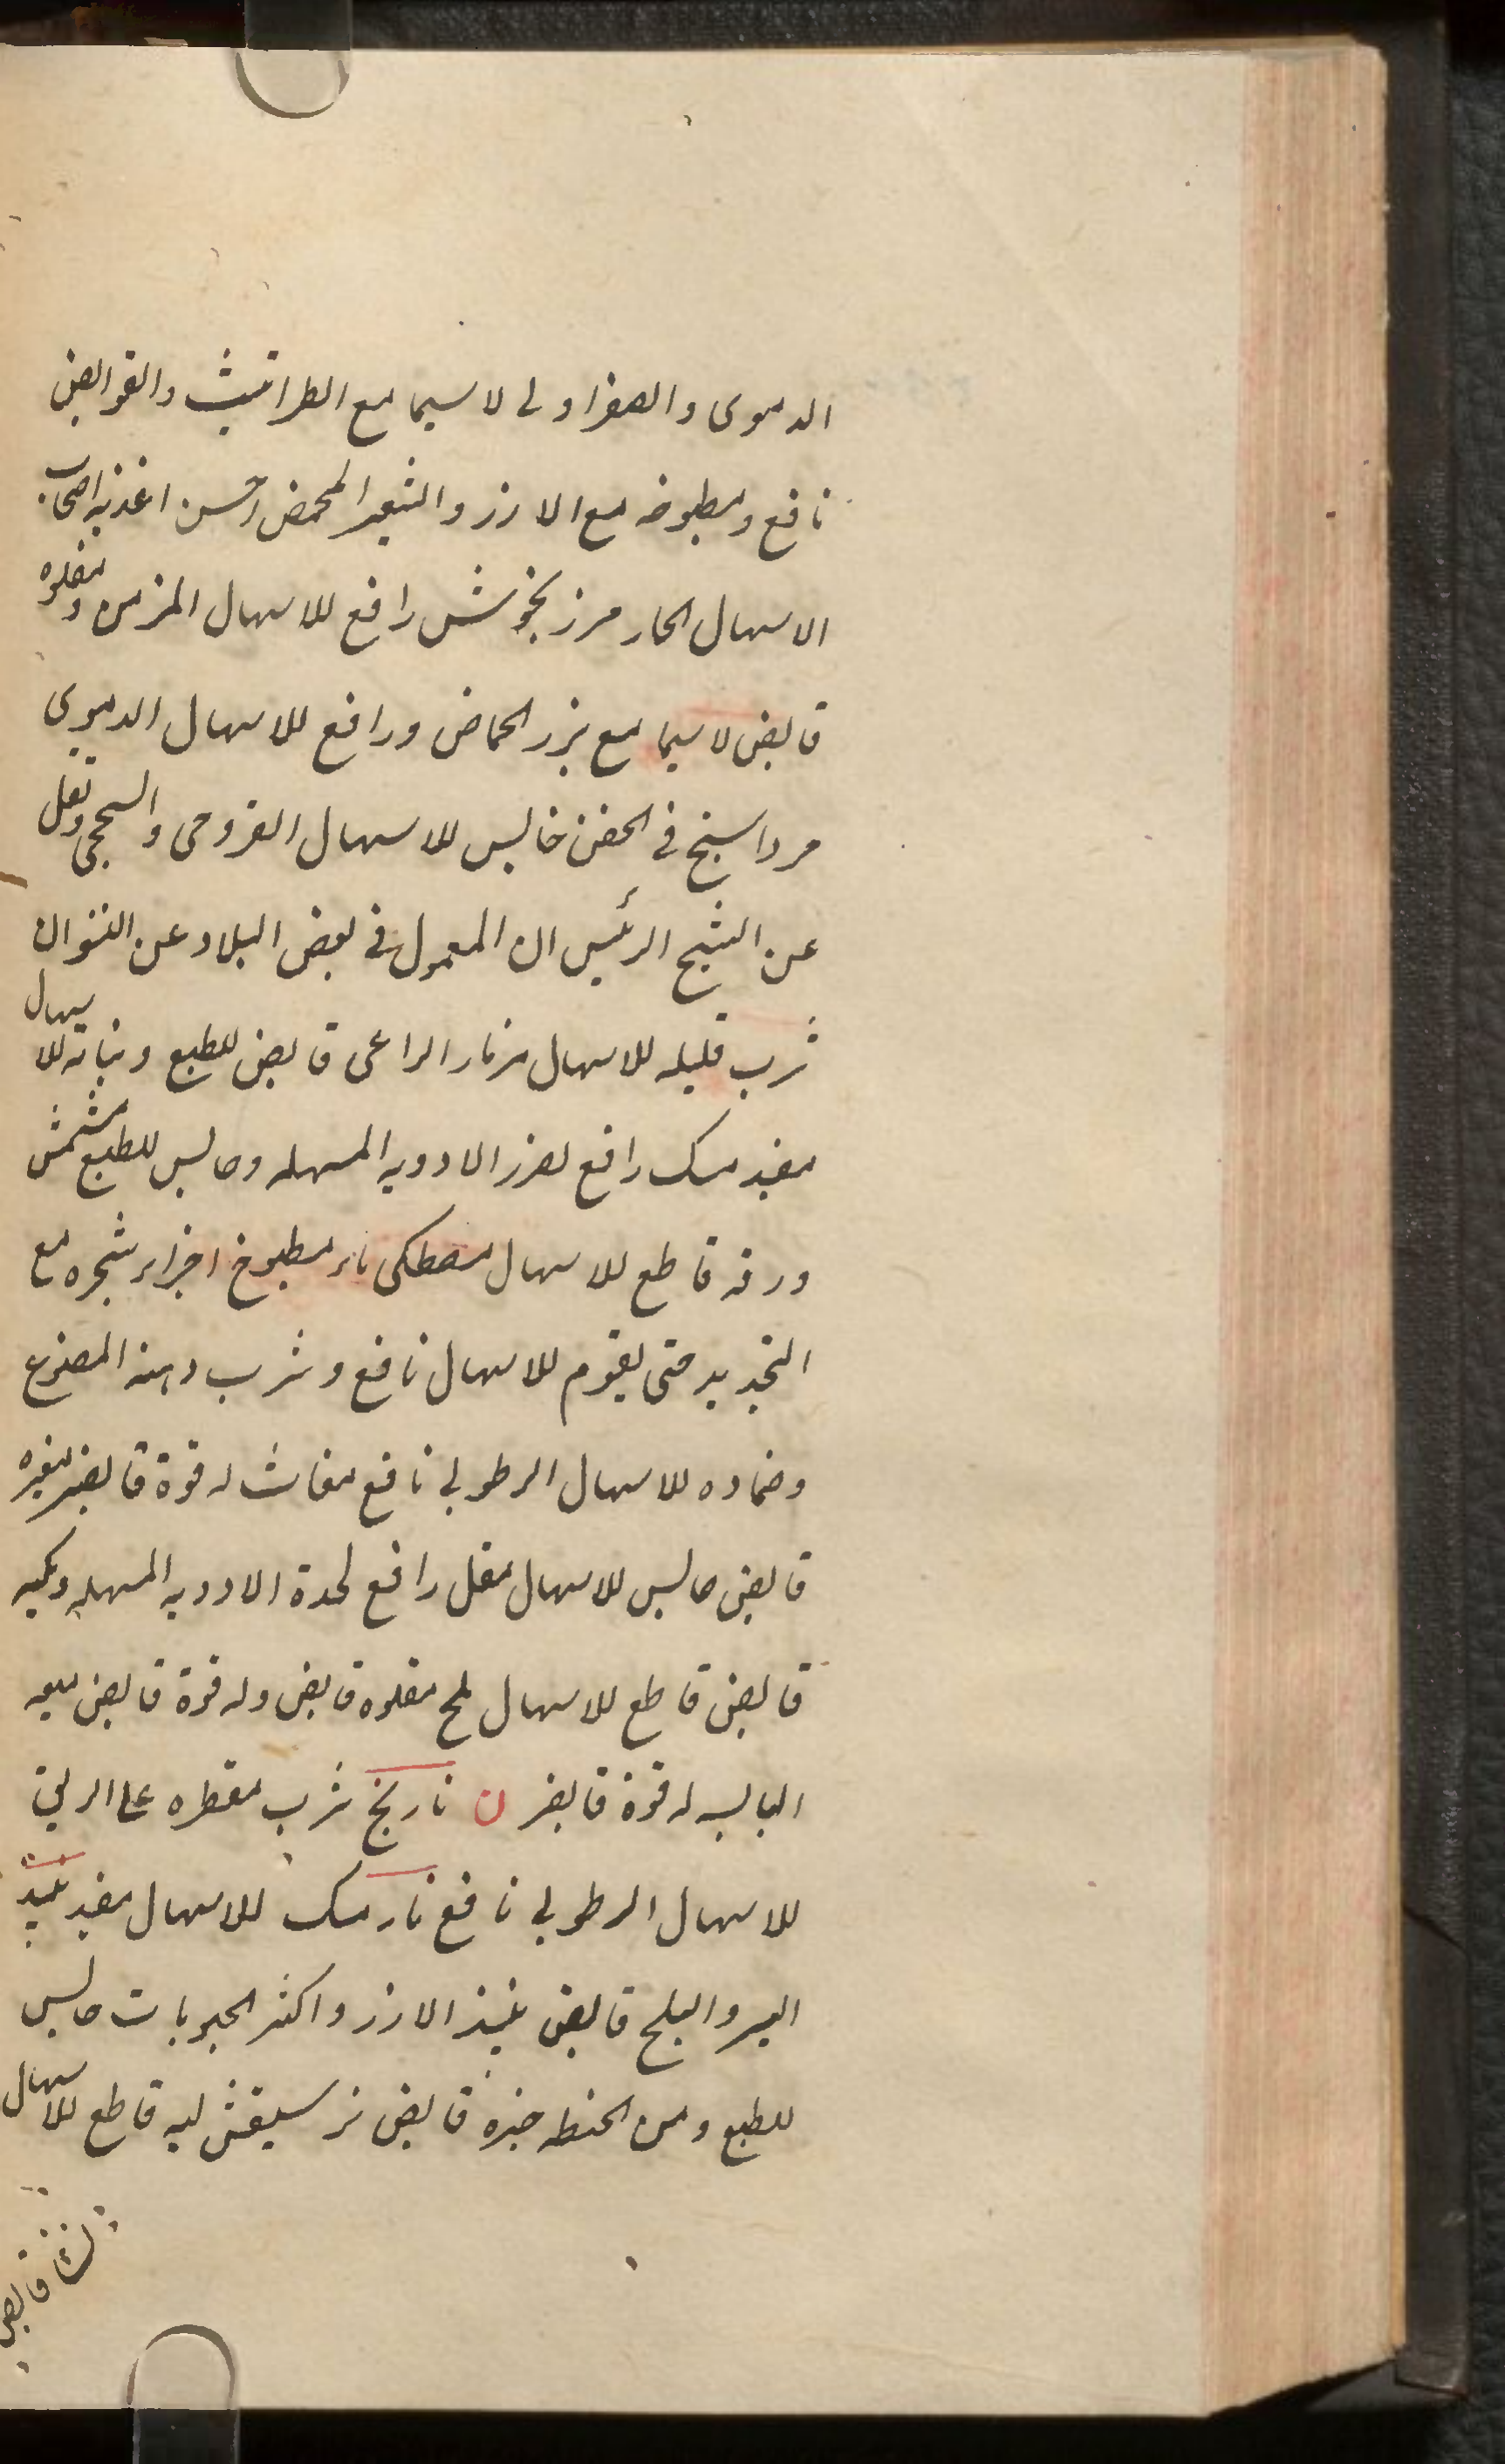 الدموی والصفراولی لا سیما مع الطراثیث والقوابض
نافع ومطبوخه مع الارز والشعیر المحمض احسن اغذیه اصحاب
الاسهال الحار مرزنجوش رافع للاسهال المزمن ومقلوه
قابض لا سیما مع بزر الحماض ورافع للاسهال الدموی
مرداسنج فی الحقن حابس للاسهال القروحی والسحجی ونقل
عن الشیخ الرئیس ان المعمول فی بعض البلاد عن النسوان
شرب قلیله للاسهال مزمار الراعی قابض للطبع ونباته للاسهال
مفید مسک رافع لضرر الادویه المسهله وحابس للطبع مشمش
ورقه قاطع للاسهال مصطکی ماء مطبوخ اجزاء شجره مع
التجدید حتی یقوم للاسهال نافع وشرب دهنه المصنوع
وضماده للاسهال الرطوبی نافع مغاث له قوة قابضه مغره
قابض حابس للاسهال مقل رافع لحدة الادویه المسهله ومکیه
قابض قاطع للاسهال ملح مقلوه قابض وله قوة قابض میعه
الیابسه له قوة قابضه ن نارنج شرب مقطره علی الریق
للاسهال الرطوبی نافع نارمسک للاسهال مفید نبیذ
البسر والبلح قابض نبیذ الارز واکثر الحبوبات حابس
للطبع ومن الحنطه خبزه قابض نرسیقش لبه قاطع للاسهال
نشا قابض